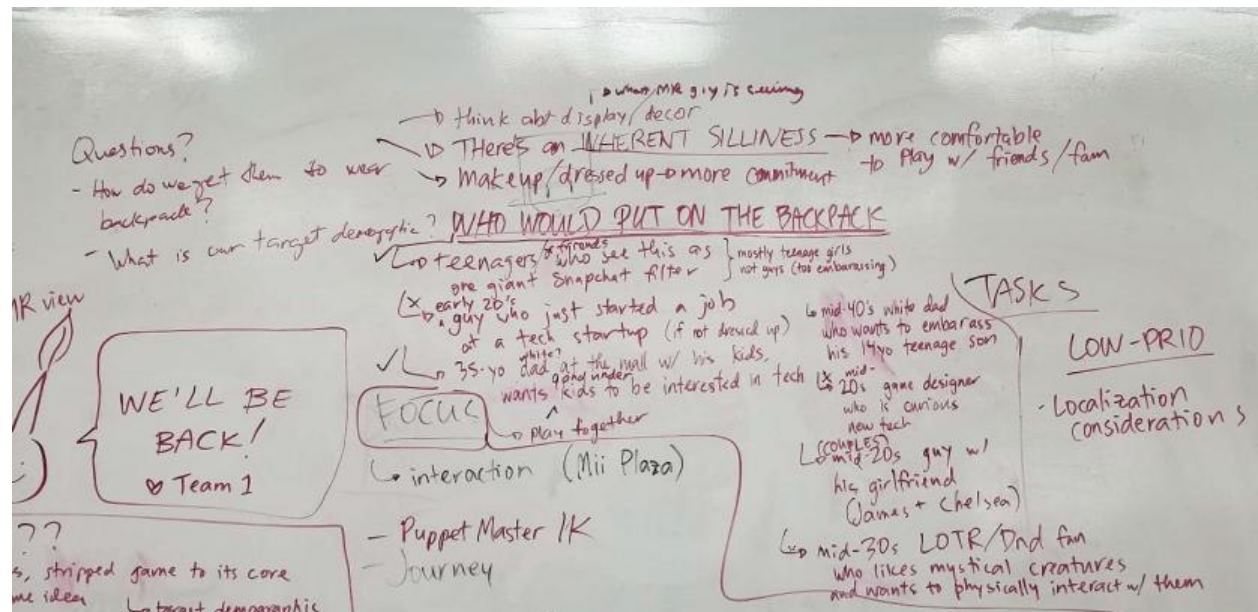 when MR guy is
→ think abt display/decor
Questions?
→ THere's an INHERENT SILLINESS → more comfortable
to Play w/ friends/fam
- How do we get them to wear
backpack?
→ makeup/dressed up → more commitment
- What is our target demographic?
WHO WOULD PUT ON THE BACKPACK
teenagers + friends who see this as
one giant Snapchat filter
mostly teenage girls
not guys (too embarassing)
early 20's
guy who just started a job
at a tech startup (if not dressed up)
35-yo white? dad at the mall w/ his kids,
wants kids to be interested in tech
9 and under
→ play together
mid-40's white dad
who wants to embarass
his 14yo teenage son
mid-
20s game designer
who is curious
new tech
(COUPLES)
mid-20s guy w/
his girlfriend
(James + Chelsea)
mid-30s LOTR/Dnd fan
who likes mystical creatures
and wants to physically interact w/ them
TASKS
LOW-PRIO
- Localization
considerations
MR view
WE'LL BE
BACK!
♡ Team 1
FOCUS
interaction (Mii Plaza)
- Puppet Master IK
- Journey
??
s, stripped game to its core
me idea
target demographic